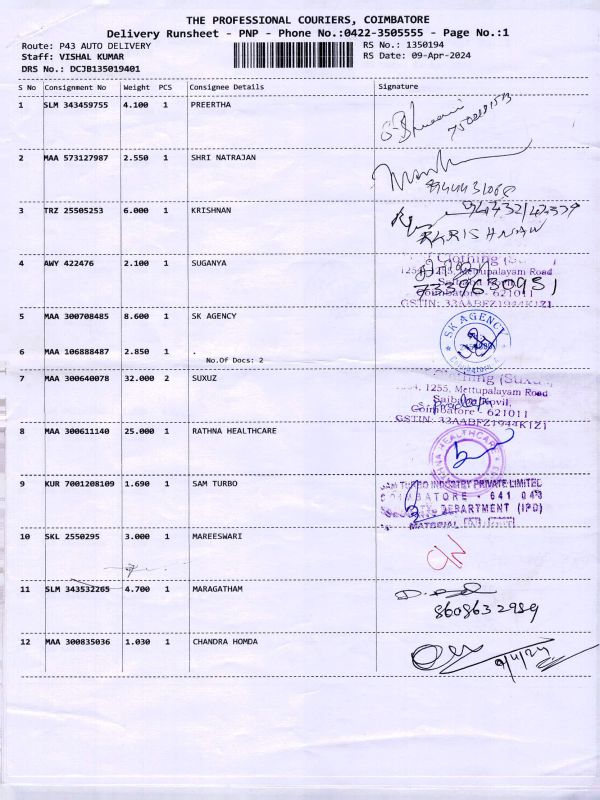 THE PROFESSIONAL COURIERS, COIMBATORE
Delivery Runsheet - PNP - Phone No.:0422-3505555 - Page No.:1
Route: P43 AUTO DELIVERY RS No.: 1350194
Staff: VISHAL KUMAR RS Date: 09-Apr-2024
DRS No.: DCJB135019401
S No Consignment No Weight PCS Consignee Details Signature
1 SLM 343459755 4.100 1 PREERTHA
2 MAA 573127987 2.550 1 SHRI NATRAJAN
3 TRZ 25505253 6.000 1 KRISHNAN
KRISHNAN
4 AWY 422476 2.100 1 SUGANYA
Clothing
1255, Mettupalayam Road
Coimbatore - 621011
GSTIN: 33AABFZ1944K1Z1
7339630951
5 MAA 300708485 8.600 1 SK AGENCY
SK AGENCY
6 MAA 106888487 2.850 1 .
No.Of Docs: 2
7 MAA 300640078 32.000 2 SUXUZ
Clothing (Suxuz)
1255, Mettupalayam Road
Saibaba Kovil,
Coimbatore - 621011
GSTIN: 33AABFZ1944K1Z1
8 MAA 300611140 25.000 1 RATHNA HEALTHCARE
RATHNA HEALTHCARE
9 KUR 7001208109 1.690 1 SAM TURBO
SAM TURBO INDUSTRY PRIVATE LIMITED
COIMBATORE - 641 043
DEPARTMENT (IPD)
MATERIAL
10 SKL 2550295 3.000 1 MAREESWARI
11 SLM 343532265 4.700 1 MARAGATHAM
8608632989
12 MAA 300835036 1.030 1 CHANDRA HOMDA
9/4/24